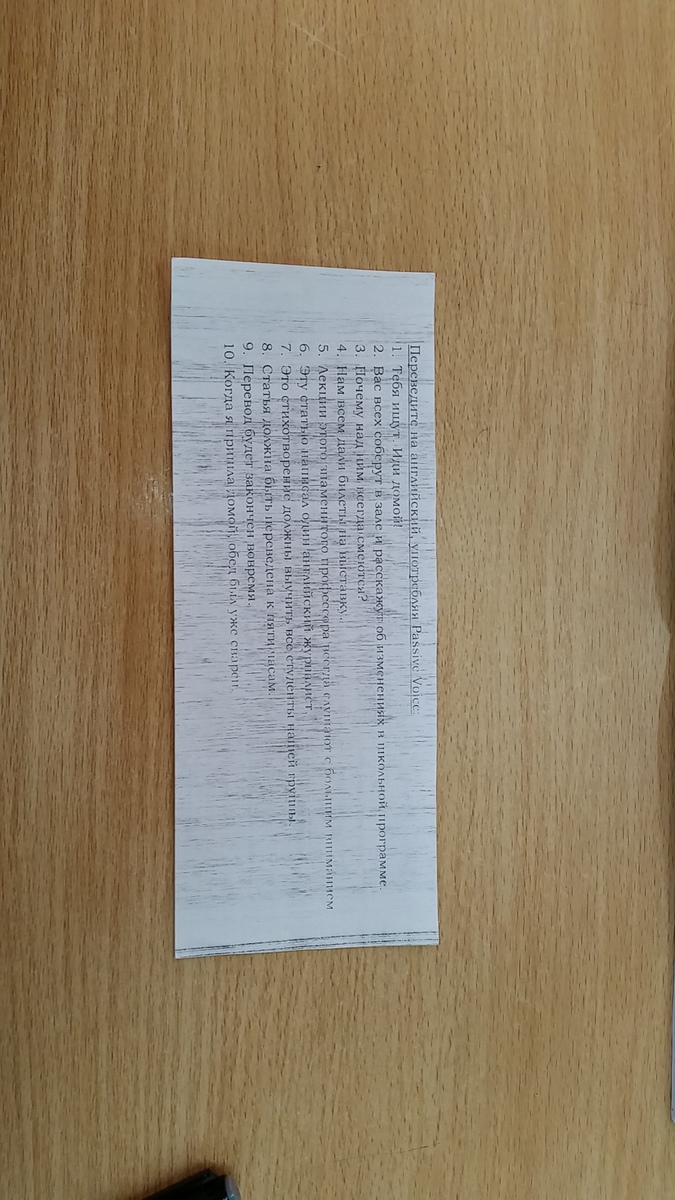 Переведите на английский, употребляя Passive Voice:
1. Тебя ищут. Иди домой!
2. Вас всех соберут в зале и расскажут об изменениях в школьной программе.
3. Почему над ним всегда смеются?
4. Нам всем дали билеты на выставку.
5. Лекции этого знаменитого профессора всегда слушают с большим вниманием
6. Эту статью написал один английский журналист.
7. Это стихотворение должны выучить все студенты нашей группы.
8. Статья должна быть переведена к пяти часам.
9. Перевод будет закончен вовремя.
10. Когда я пришла домой, обед был уже сварен.